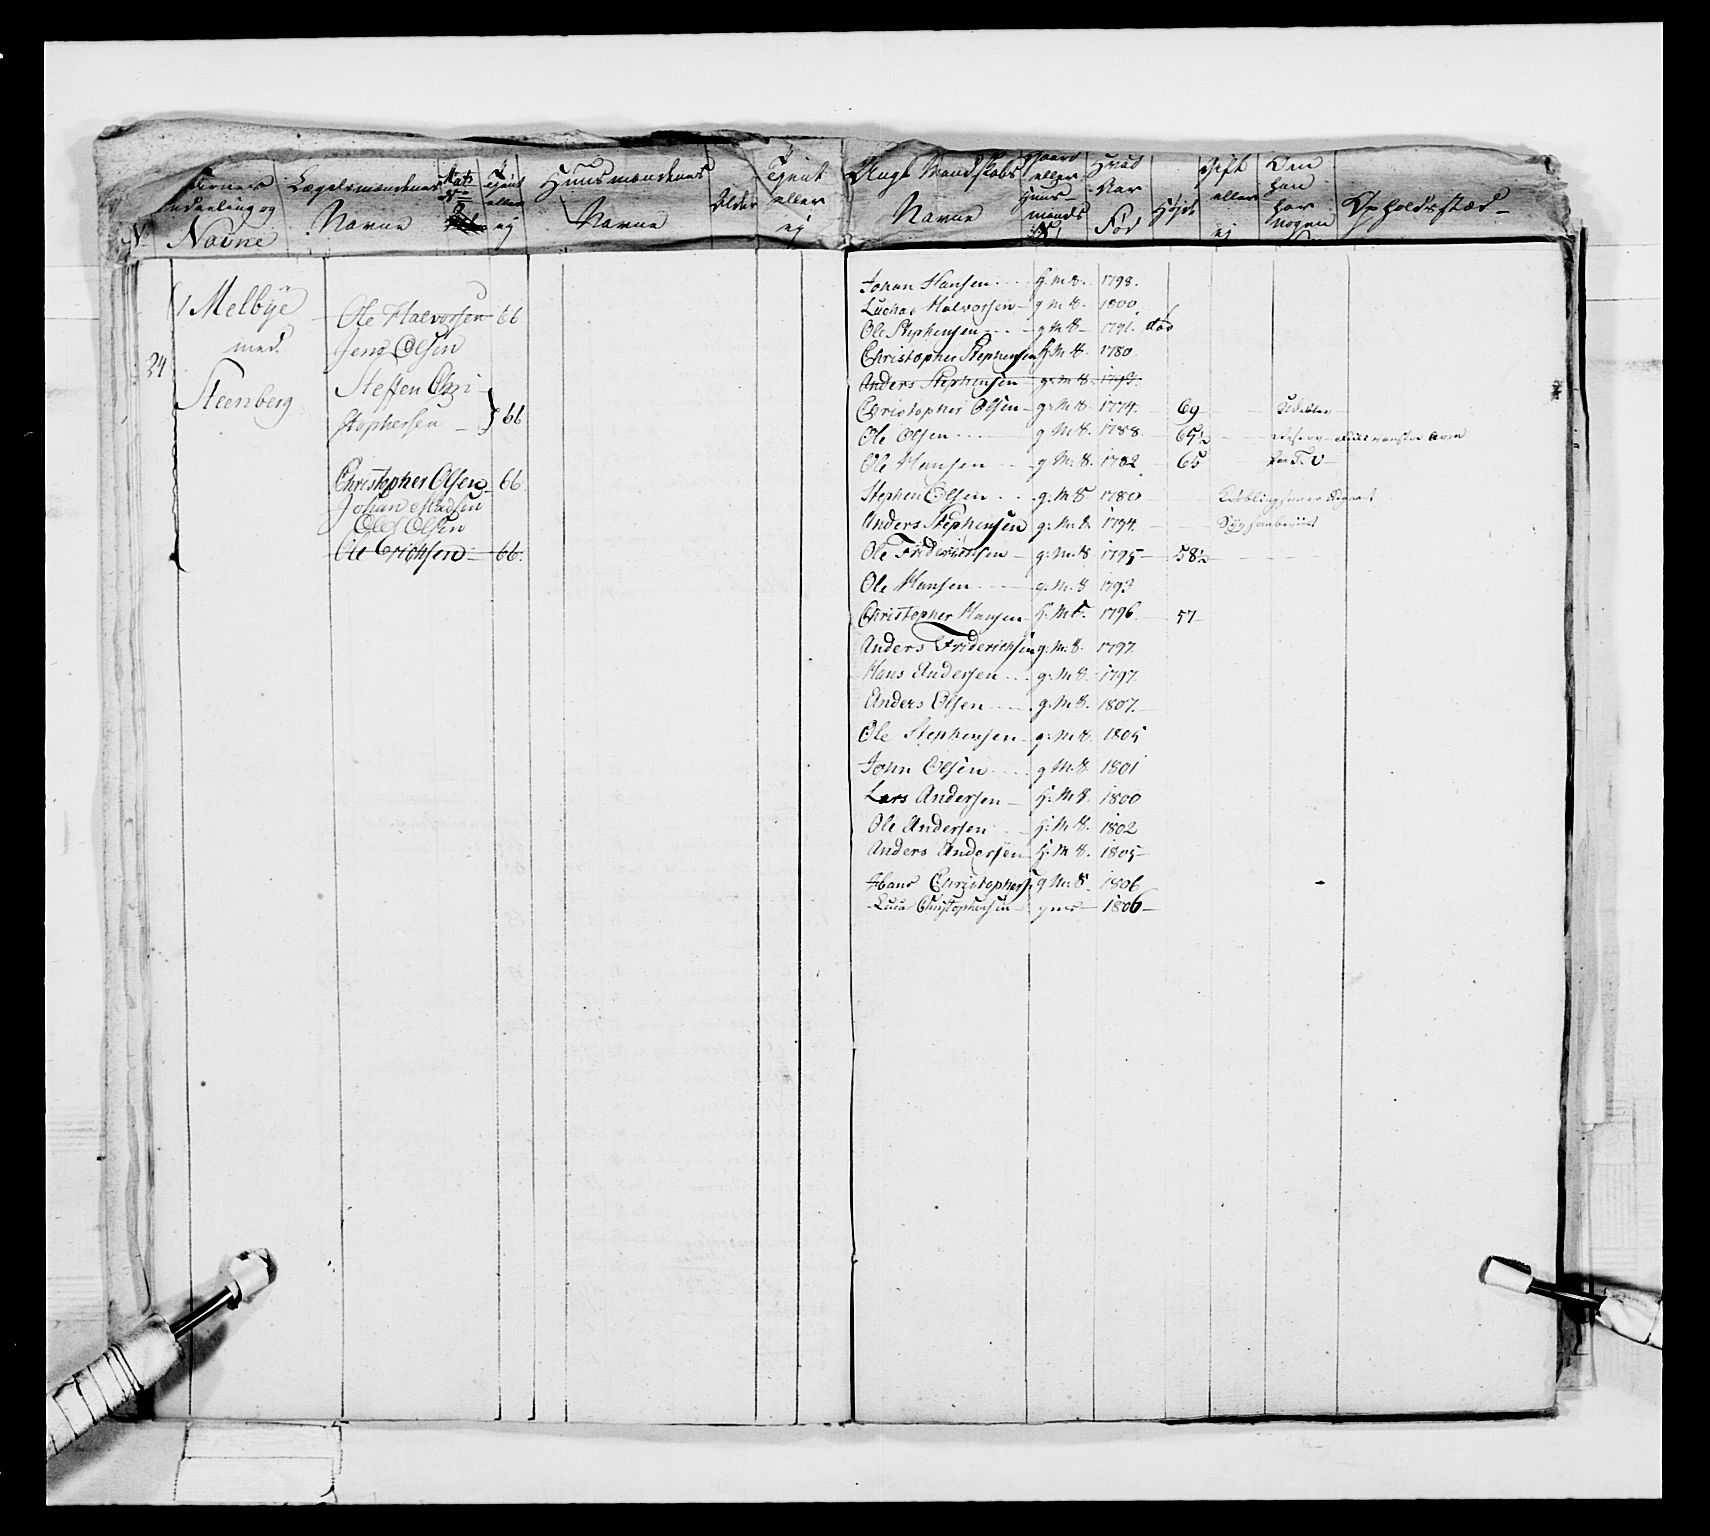 No
Navne
Lægdsmændenes
Navne
Tient
eller
ej
Huusmændenes
Navne
Alder
Tient
eller
ej
Ungt Mandskabs
Navne
eller
Huus-
mands
Hvad
Aar
Fød
Højde
Gift
eller
ej
Om
han
har
nogen
Opholdsstæd-
24
1 Melbÿe
med
Steenberg
Ole Halvorsen 66
Jens Olsen
Steffen Chri-
stophersen - } 66
Christopher Olsen 66
Johan Madsen
Ole Olsen
Ole Erichsen 66.
Johan Hansen H. M. S. 1798.
Halvorsen - g M S. 1800.
Ole Stephensen - g M S - 1791. død
Christopher Stephensen H M S. 1780.
Anders Stephensen g. M. S. 1793.
Christopher Olsen - g. M S. 1774. - 69
Ole Olsen g M S. 1788. - 65½
Ole Hansen g M. S. 1782 - 65
Stephen Olsen g. M S 1780
Anders Stephensen g. M. S. 1794
Ole Friderichsen - g. M. S 1795 - 58½
Ole Hansen g. M. S 1793
Christopher Hansen H. M S. 1796. - 57
Anders Friderichsen g. M. S. 1797.
Hans Andersen g. M S. 1797.
Anders Olsen g. M S. 1807.
Ole Stephensen - g. M S. 1805
John Olsen g M. S 1801
Lars Andersen - H. M S. 1800
Ole Andersen H. M S. 1802
Anders Andersen H. M S. 1805
Hans Christophers g M. S 1806
Christophersen g M S 1806